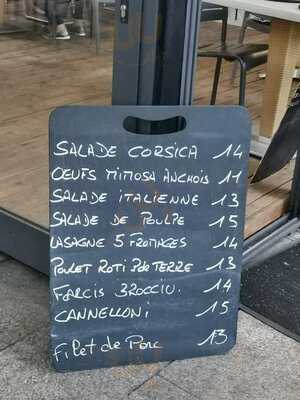 SALADE CORSICA 14
OEUFS MIMOSA ANCHOIS 11
SALADE ITALIENNE 13
SALADE DE POULPE 15
LASAGNE 5 FROMAGES 14
POULET ROTI P de TERRE 13
FARCIS BROCCIU. 14
CANNELLONI 15
Filet de Porc 13